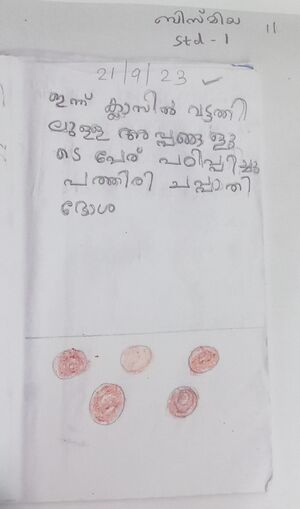 ബിസ്മിയ
Std - 1
11
21/9/23
ഇന്ന് ക്ലാസിൽ വട്ടത്തി
ലുള്ള അപ്പങ്ങളു
ടെ പേര് പഠിപ്പിച്ചു
പത്തിരി ചപ്പാതി
ദോശ